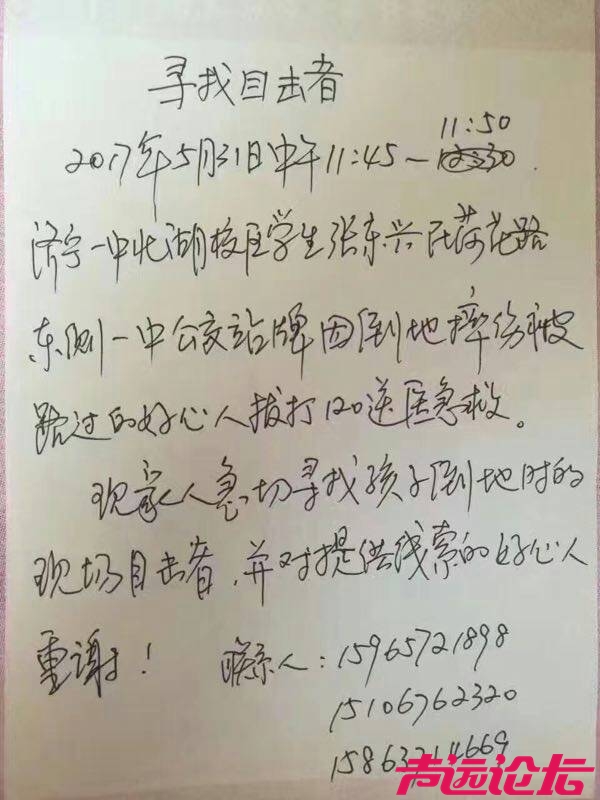 寻找目击者
11:50
2017年5月31日中午11:45-
济宁一中北湖校区学生张东兴在荷花路
东侧一中公交站牌因倒地摔伤被
路过的好心人拔打120送医急救。
现家人急切寻找孩子倒地时的
现场目击者,并对提供线索的好心人
重谢! 联系人:15965721898
15106762320
15863714669
声远论坛